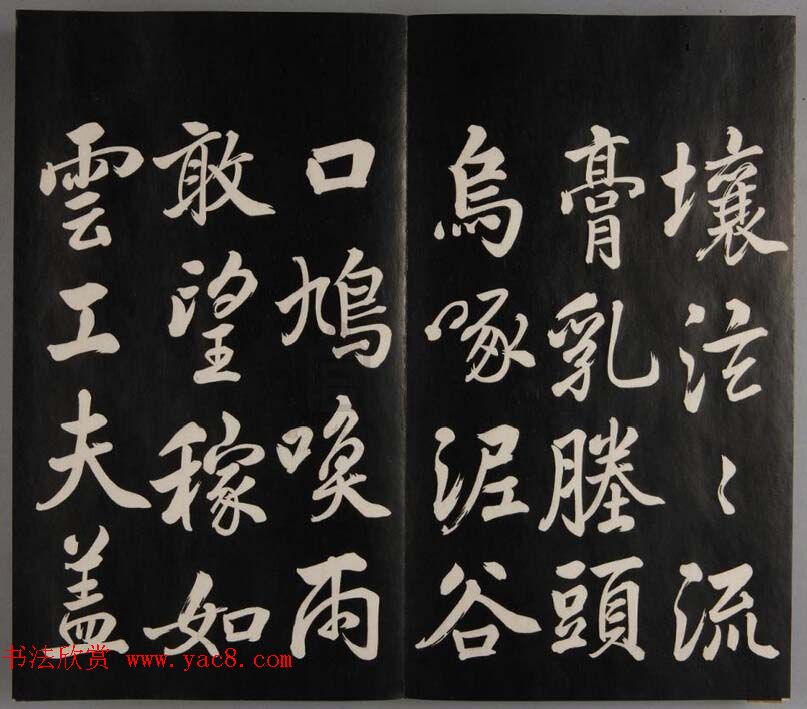 壤泛〻流
膏乳塍頭
烏啄泥谷
口鳩喚雨
敢望稼如
雲工夫盖
书法欣赏 www.yac8.com